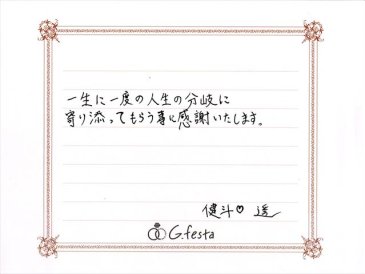 一生に一度の人生の分岐に
寄り添ってもらう事に感謝いたします。
健斗♡ 遥
G.festa